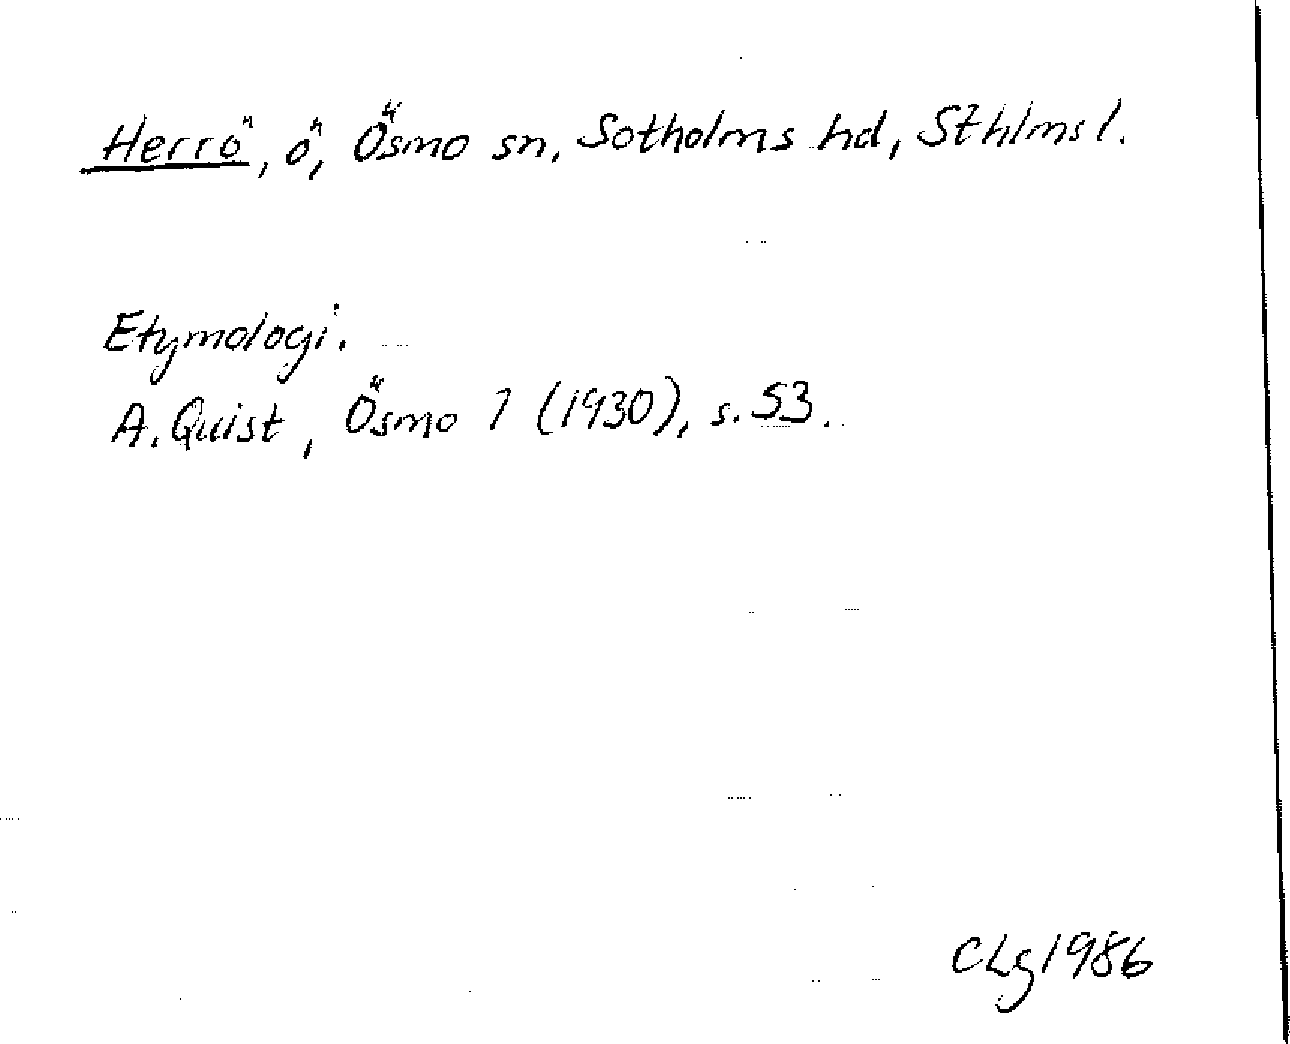 Herrö, ö, Ösmo sn, Sotholms hd, Sthlms l.
Etymologi.
A. Quist, Ösmo 1 (1930), s. 53.
CLg 1986